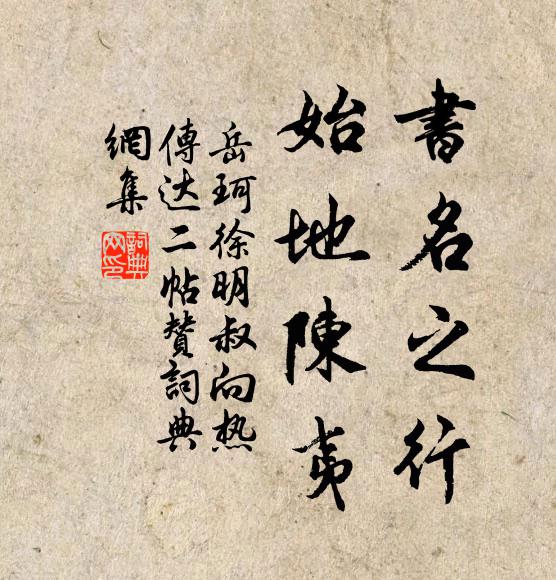 書名之行
始地陳夷
岳珂徐明叔向热
傳达二帖赞詞典
網集
詞典
网印